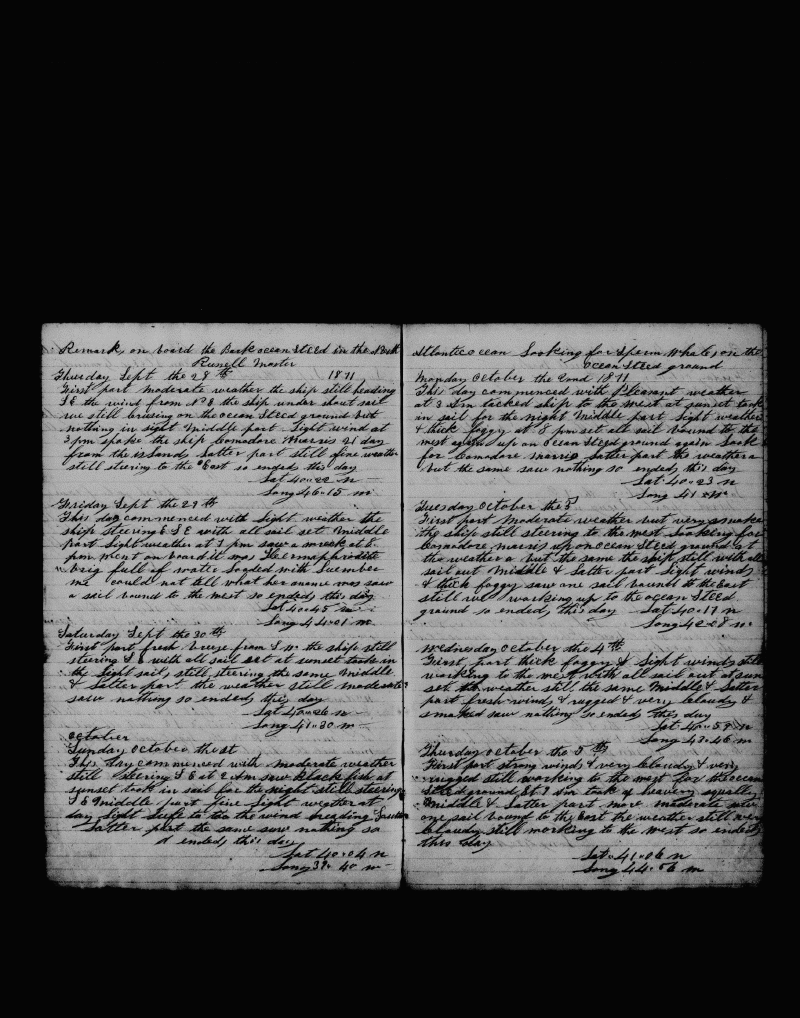 Remarks on board the Bark ocean Steed in the North
Russell Master
Thursday Sept the 28th 1871
First part Moderate weather the ship still heading
S E the wind from N E the ship under short sail
we still cruising on the ocean Steed ground but
nothing in sight Middle part Light wind at
3 pm spoke the ship Comodore Marris 21 day
from the issands Latter part still fine weather
still steering to the East so ended this day
Lat 40-22 n
Long 46-15 w
Friday Sept the 29th
This day commenced with Light weather the
ship steering E S E with all sail set Middle
part Light weather at 3 pm saw a wreck at 8
pm went on board it was Hermaphrodite
brig full of water Loaded with Luember
we could not tell what her name was saw
a sail bound to the west so ended this day
Lat 40-45 n
Long 44-01 w
Saturday Sept the 30th
First part fresh breeze from S W the ship still
steering S E with all sail set at sunset took in
the light sail still steering the same Middle
& Latter part the weather still moderate
saw nothing so ended this day
Lat 40-26 n
Long 41-30 w
October
Sunday October the 1st
This day commenced with moderate weather
still steering S E at 2 pm saw blackfish at
sunset took in sail for the night still steering
S E Middle part fine Light weather at
day Light Luft to the wind heading
Latter part the same saw nothing so
ended this day
Lat 40-04 n
Long 39-40 w
Atlantic ocean Looking for Sperm Whales on the
Ocean Steed ground
Monday October the 2nd 1871
This day commenced with Pleasant weather
at 3 pm tacked ship to the west at sunset took
in sail for the night Middle part Light weather
& thick foggy at 8 pm set all sail bound to the
west again up on ocean Steed ground again Look
for Comodore marris Latter part the weather
but the same saw nothing so ended this day
Lat 40-23 n
Long 41 w
Tuesday October the 3
First part Moderate weather but very smoke
the ship still steering to the west Looking for
Comodore marris up on ocean Steed ground at
the weather but the same the ship still with all
sail out Middle & Latter part Light winds
& thick foggy saw one sail bound to the East
still we working up to the ocean Steed
ground so ended this day Lat 40-17 n
Long 42-08 w
Wednesday October the 4th
First part thick foggy & Light winds still
working to the west with all sail out at sun
set the weather still the same Middle & Latter
part fresh winds & rugged & very blaudy &
smoked saw nothing so ended this day
Lat 40-59 n
Long 43-46 w
Thursday October the 5th
First part strong winds & very blaudy & very
rugged still working to the west for the ocean
Steed ground at pm took of heavey squalley
Middle & Latter part more moderate saw
one sail bound to the East the weather still very
blaudy still working to the west so ended
this day
Lat 41-06 n
Long 44-56 w